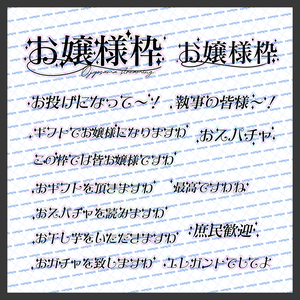 お嬢様枠 お嬢様枠
Ojousama streaming
お投げになって〜！ 執事の皆様〜！
ギフトでお嬢様になりますわ お スパチャ
この枠では皆お嬢様ですわ
おギフトを頂きますわ 最高ですわね
おスパチャを読みますわ
お干し芋をいただきますわ 庶民歓迎
おガチャを致しますわ エレガントでしてよ